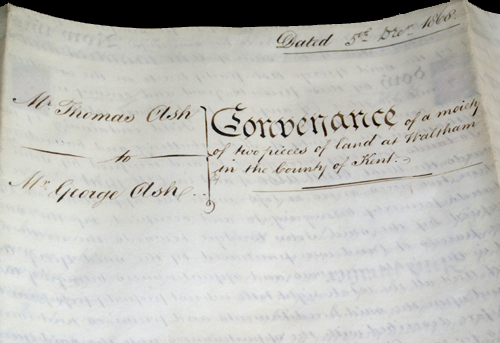 Dated 5th Decr. 1860.
Mr. Thomas Ash
to
Mr. George Ash
Conveyance of a moiety
of two pieces of land at Waltham
in the County of Kent.